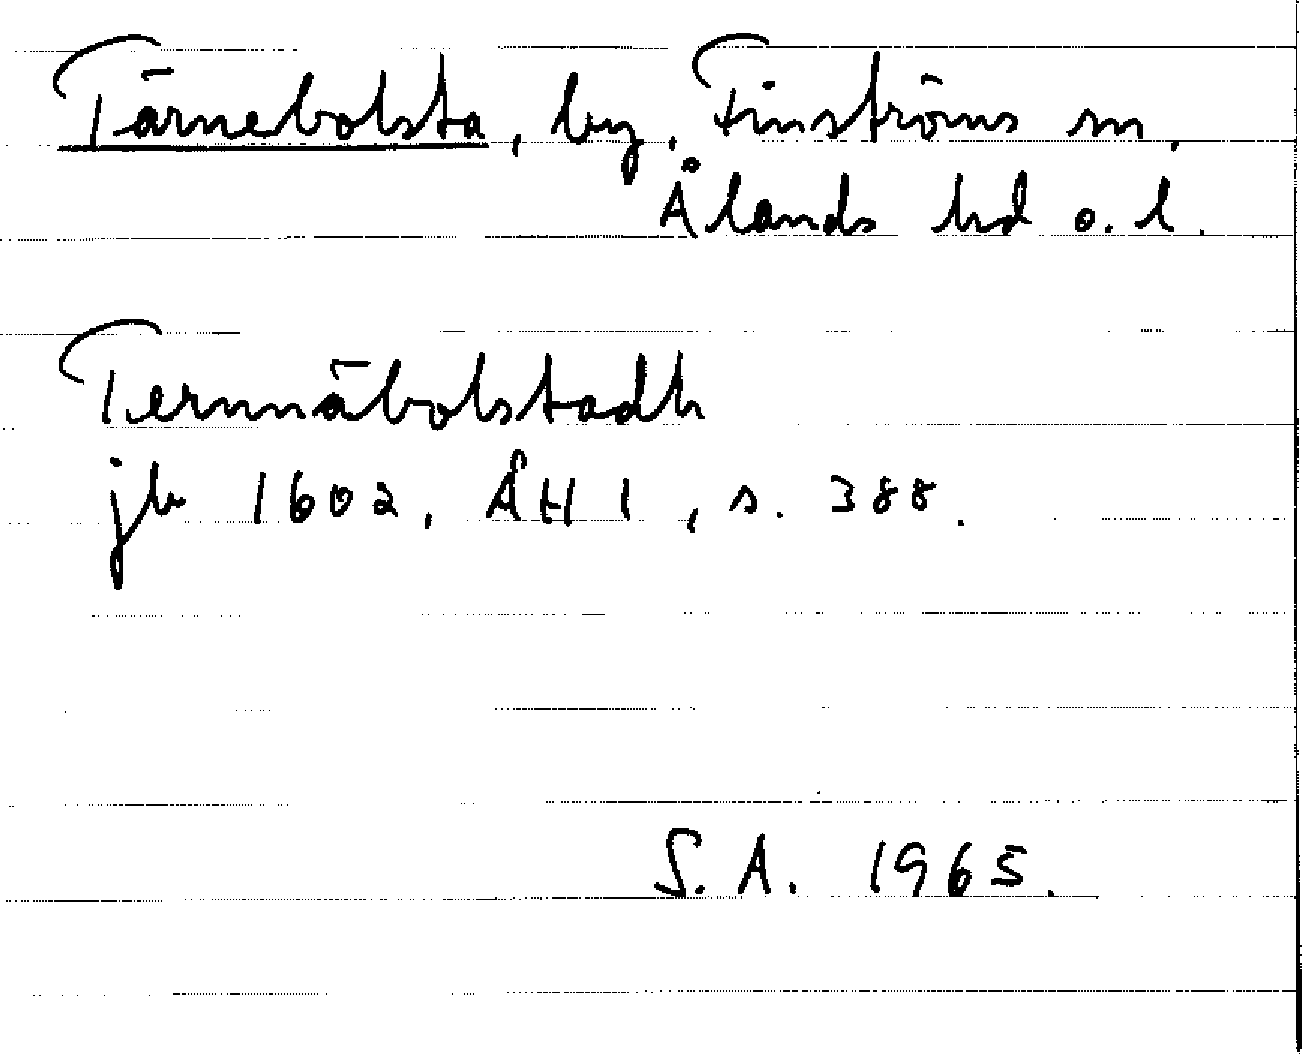 Tärnebolsta, by, Finströms sn,
Ålands hd o. l.
Ternnäbolstadh
jb 1602, ÅH 1, s. 388.
S. A. 1965.